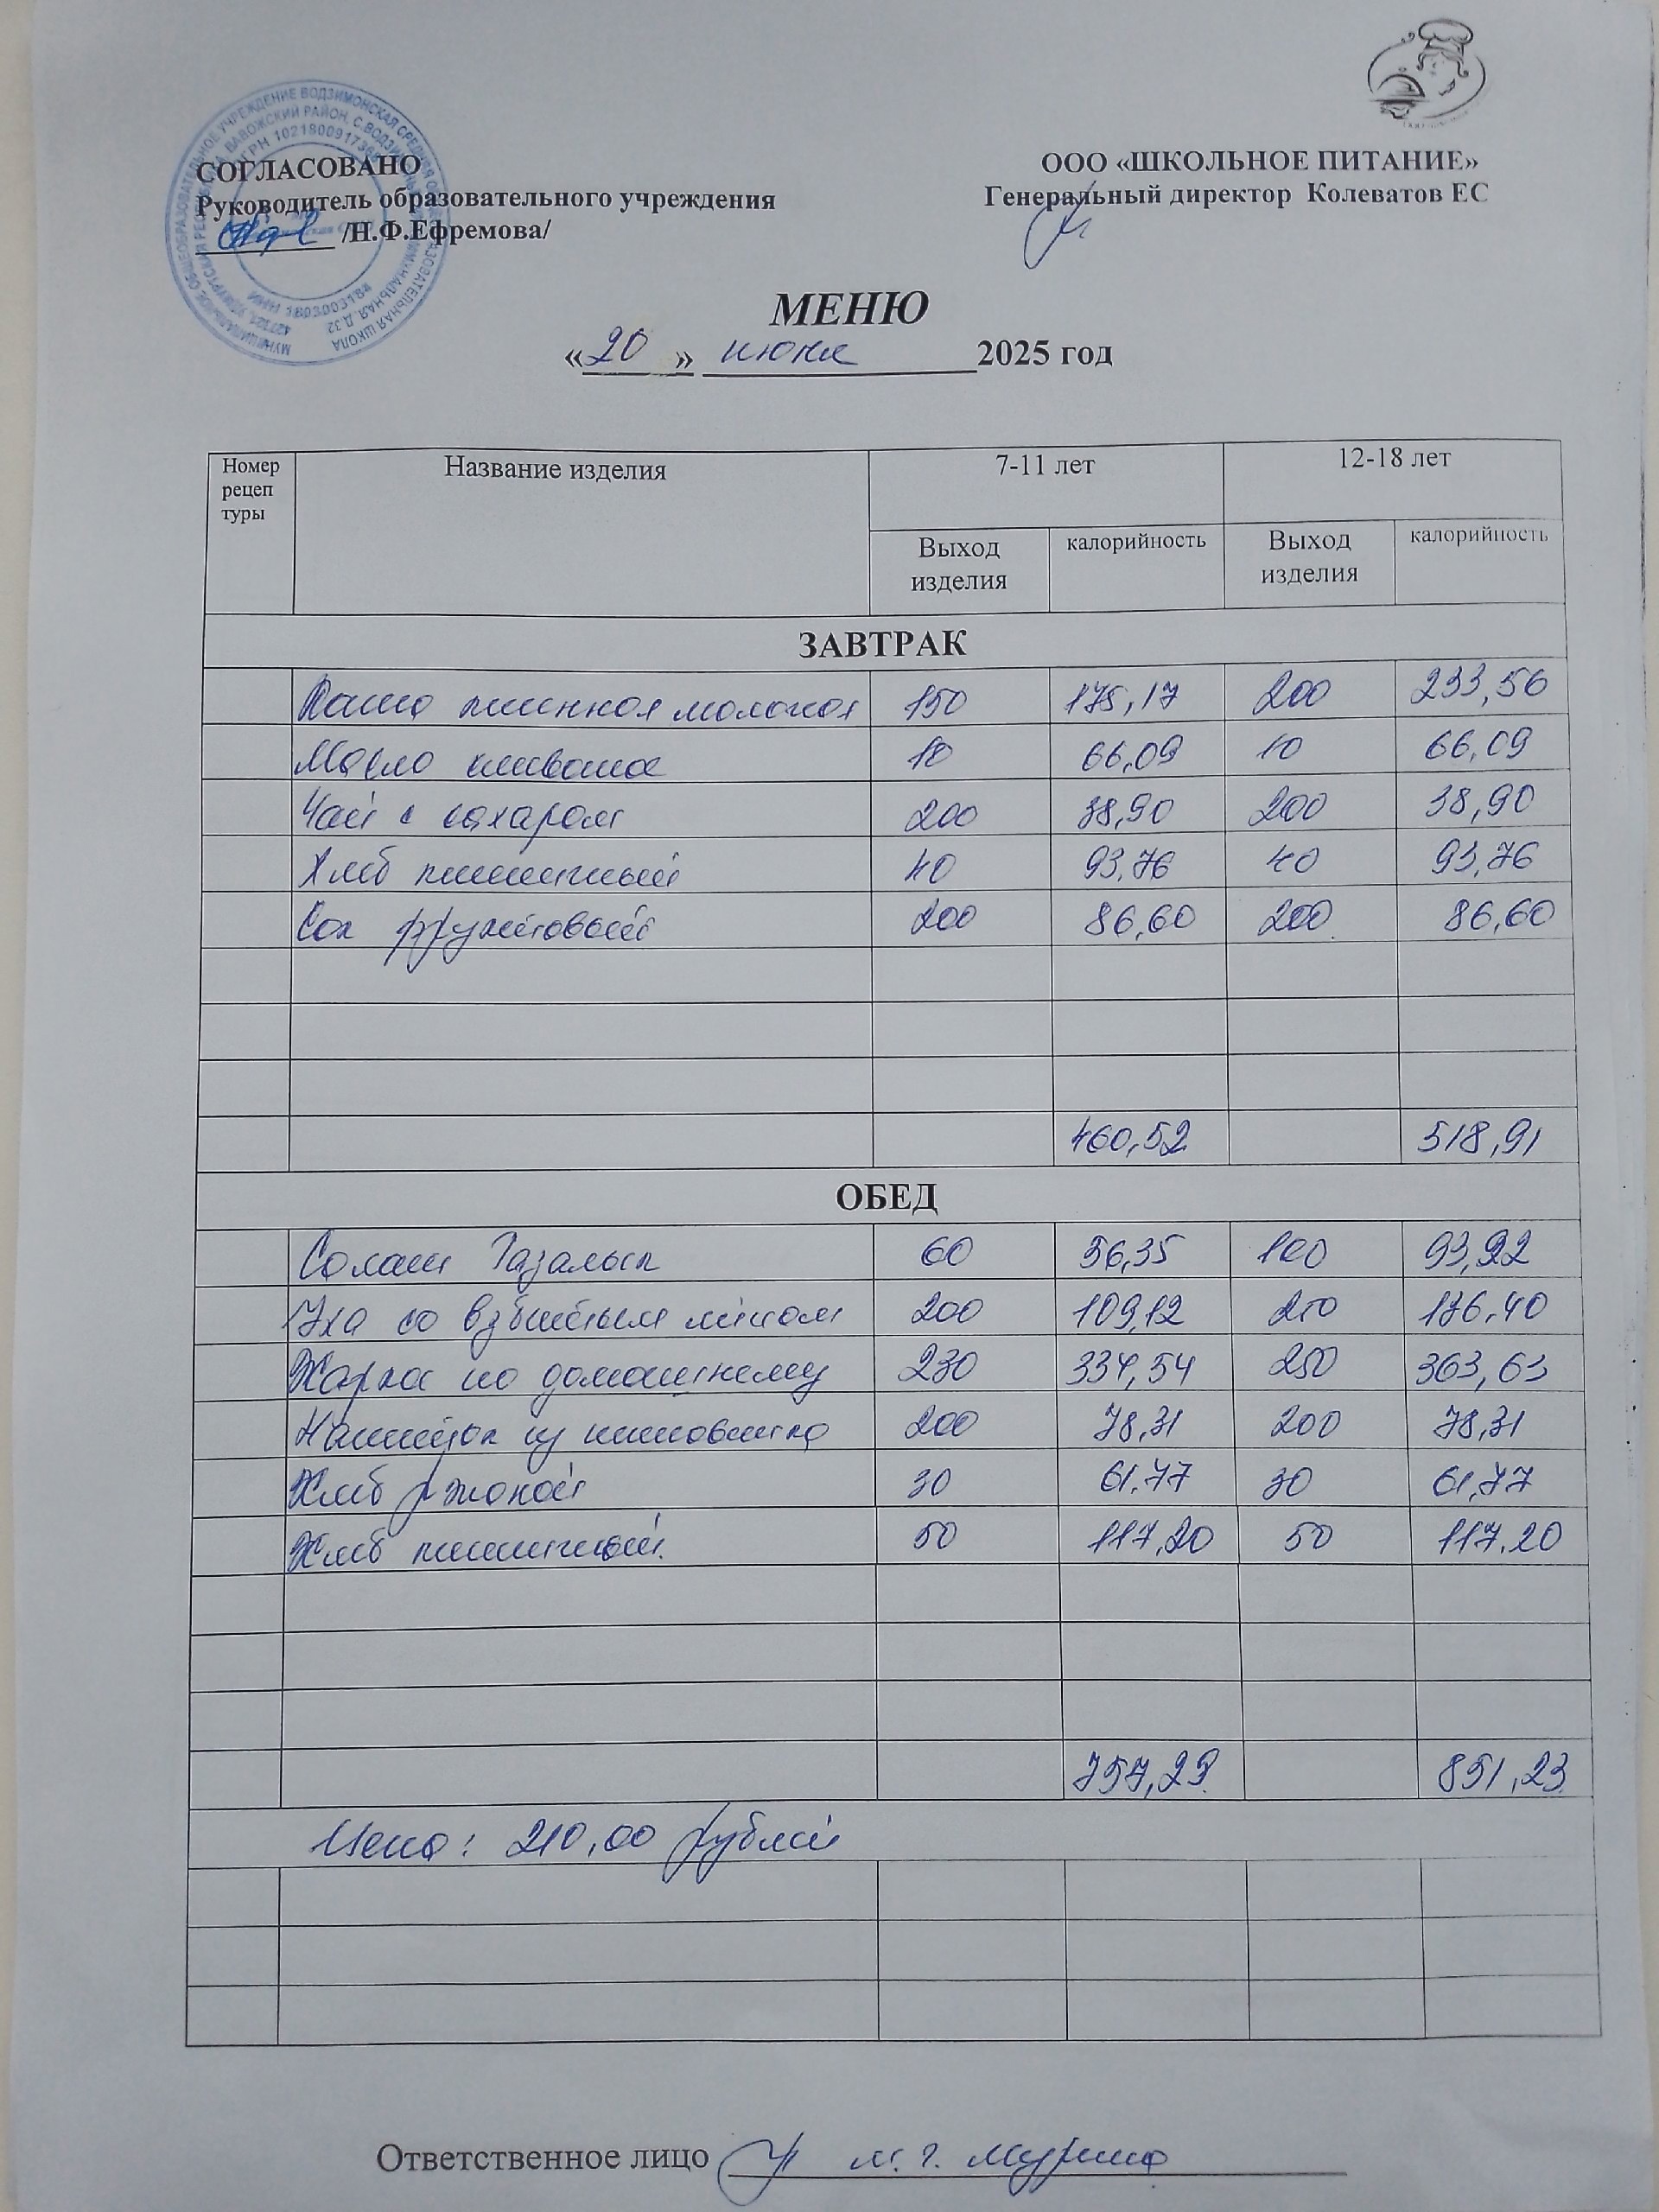 МУНИЦИПАЛЬНОЕ ОБЩЕОБРАЗОВАТЕЛЬНОЕ УЧРЕЖДЕНИЕ ВОДЗИМОНСКАЯ СРЕДНЯЯ ОБЩЕОБРАЗОВАТЕЛЬНАЯ ШКОЛА
ВАВОЖСКИЙ РАЙОН, С.
ИНН 1803003184
СОГЛАСОВАНО
Руководитель образовательного учреждения
/Н.Ф.Ефремова/
ООО «ШКОЛЬНОЕ ПИТАНИЕ»
Генеральный директор Колеватов ЕС
МЕНЮ
«20» июня 2025 год
Номер рецеп туры Название изделия 7-11 лет 12-18 лет
Выход изделия калорийность Выход изделия калорийность
ЗАВТРАК
Каша пшенная молочная 150 175,17 200 233,56
Масло сливочное 10 66,09 10 66,09
Чай с сахаром 200 38,90 200 38,90
Хлеб пшеничный 40 93,76 40 93,76
Сок фруктовый 200 86,60 200 86,60
460,52 518,91
ОБЕД
Салат 60 56,35 100 93,92
Уха со взбитым яйцом 200 109,12 250 136,40
Жаркое по домашнему 230 334,54 250 363,63
Напиток из шиповника 200 78,31 200 78,31
Хлеб ржаной 30 61,77 30 61,77
Хлеб пшеничный. 50 117,20 50 117.20
757,29 851,23
Цена: 210,00 рублей
Ответственное лицо М. Г. Мурина